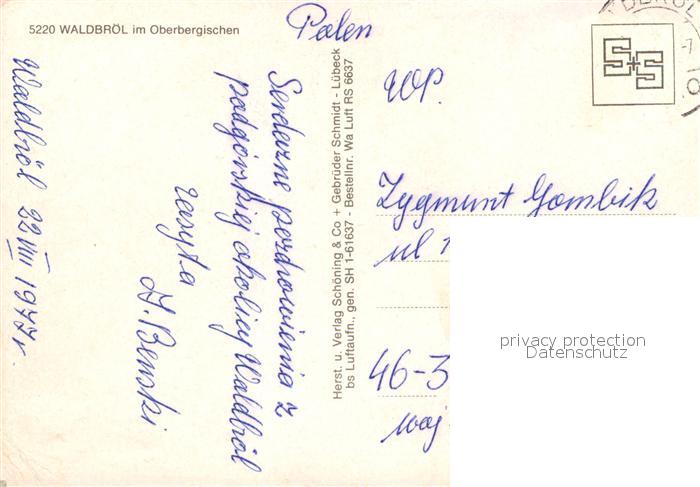 5220 WALDBRÖL im Oberbergischen
Waldbröl 22 VIII 1977 r.
Serdeczne pozdrowienia z
podgórskiej okolicy Waldbröl
zasyła
Herst. u. Verlag Schöning & Co + Gebrüder Schmidt - Lübeck
bs Luftaufn., gen. SH 1-61637 - Bestellnr. Wa Luft RS 6637
Polen
WP.
Zygmunt Gombik
ul
46-3
woj
S+S
privacy protection
Datenschutz